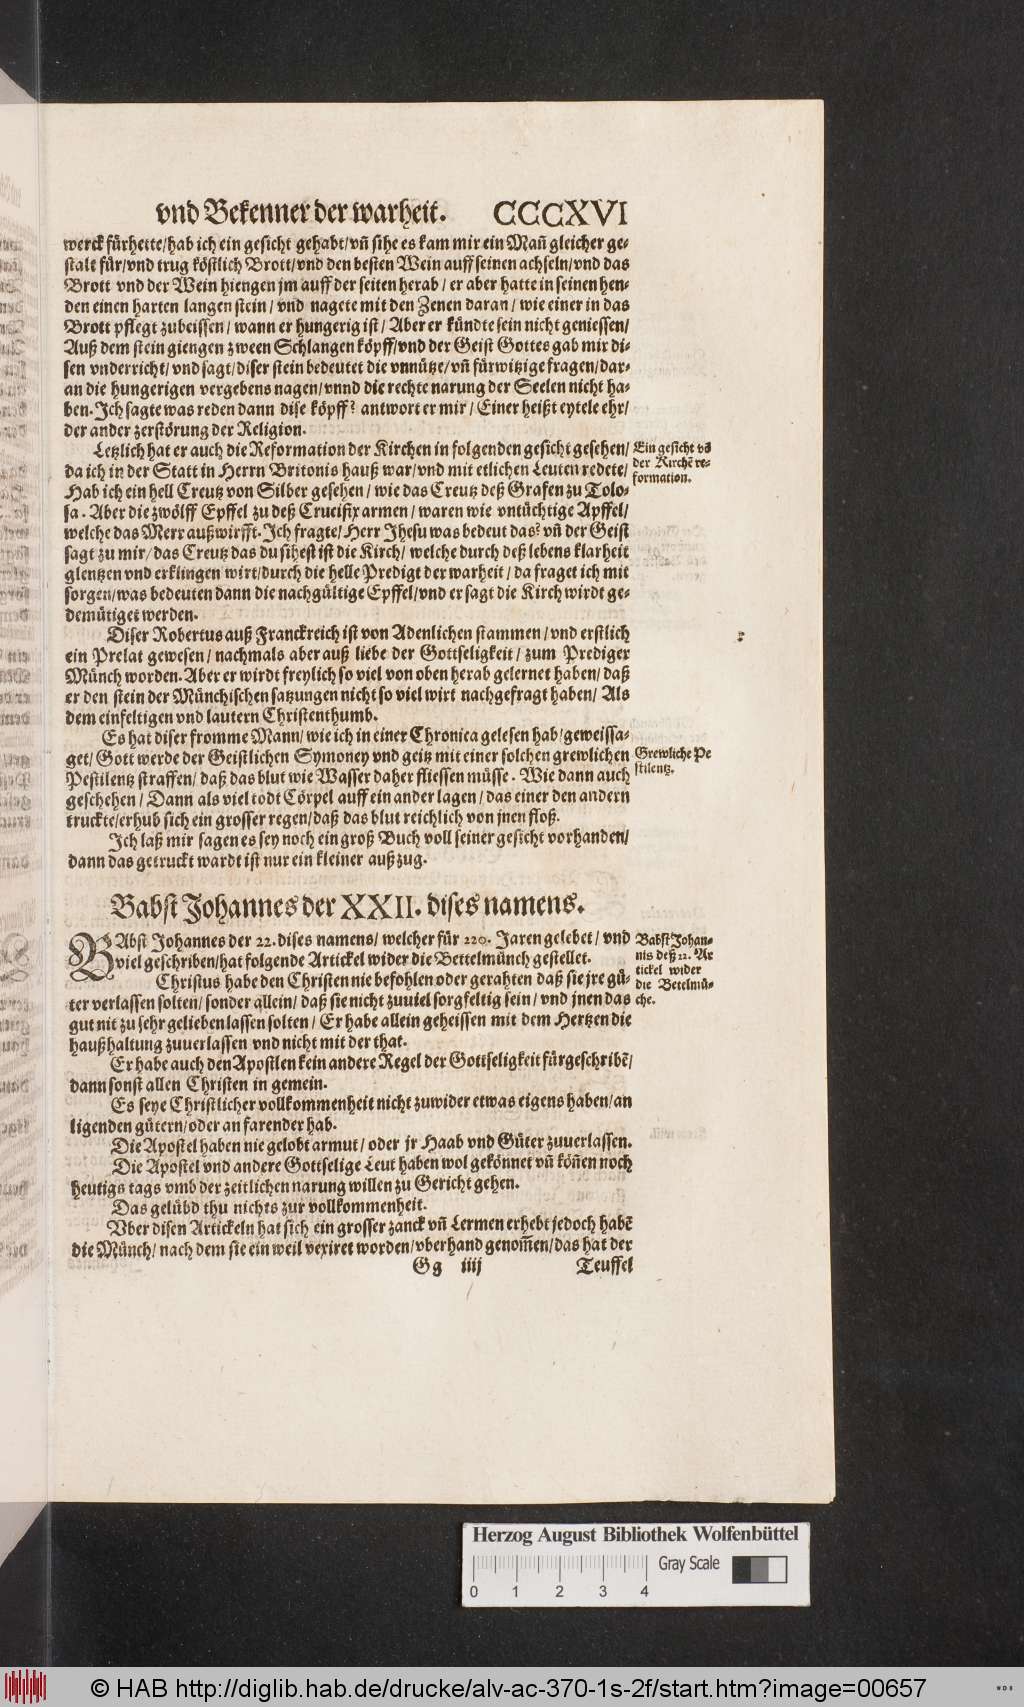 vnd Bekenner der warheit. CCCXVI
werck fürhette/hab ich ein gesicht gehabt/vñ sihe es kam mir ein Mañ gleicher ge-
stalt für/vnd trug köstlich Brott/vnd den besten Wein auff seinen achseln/vnd das
Brott vnd der Wein hiengen jm auff der seiten herab / er aber hatte in seinen hen-
den einen harten langen stein / vnd nagete mit den Zenen daran / wie einer in das
Brott pflegt zubeissen / wann er hungerig ist / Aber er kündte sein nicht geniessen/
Auß dem stein giengen zween Schlangen köpff/vnd der Geist Gottes gab mir di-
sen vnderricht/ vnd sagt/ diser stein bedeutet die vnnütze/ vñ fürwitzige fragen/ dar-
an die hungerigen vergebens nagen/ vnnd die rechte narung der Seelen nicht ha-
ben. Ich sagte was reden dann dise köpff? antwort er mir / Einer heißt eytele ehr/
der ander zerstörung der Religion.
Letzlich hat er auch die Reformation der Kirchen in folgenden gesicht gesehen/
da ich in der Statt in Herrn Britonis hauß war/vnd mit etlichen Leuten redete/
Hab ich ein hell Creutz von Silber gesehen / wie das Creutz deß Grafen zu Tolo-
sa. Aber die zwölff Epffel zu deß Crucifix armen / waren wie vntüchtige Apffel/
welche das Meer außwirfft. Ich fragte/ Herr Jhesu was bedeut das? vñ der Geist
sagt zu mir/ das Creutz das du sihest ist die Kirch/ welche durch deß lebens klarheit
glentzen vnd erklingen wirt/durch die helle Predigt der warheit / da fraget ich mit
sorgen/was bedeuten dann die nachgültige Epffel/vnd er sagt die Kirch wirdt ge-
demütiget werden.
Ein gesicht võ
der Kirchẽ re-
formation.
Diser Robertus auß Franckreich ist von Adenlichen stammen / vnd erstlich
ein Prelat gewesen / nachmals aber auß liebe der Gottseligkeit / zum Prediger
Münch worden. Aber er wirdt freylich so viel von oben herab gelernet haben/ daß
er den stein der Münchischen satzungen nicht so viel wirt nachgefragt haben / Als
dem einfeltigen vnd lautern Christenthumb.
Es hat diser fromme Mann/ wie ich in einer Chronica gelesen hab/ geweissa-
get/ Gott werde der Geistlichen Symoney vnd geitz mit einer solchen grewlichen
Pestilentz straffen/ daß das blut wie Wasser daher fliessen müsse. Wie dann auch
geschehen / Dann als viel todt Cörpel auff ein ander lagen / das einer den andern
truckte/erhub sich ein grosser regen/daß das blut reichlich von jnen floß.
Grewliche Pe
stilentz.
Ich laß mir sagen es sey noch ein groß Buch voll seiner gesicht vorhanden/
dann das getruckt wardt ist nur ein kleiner außzug.
Babst Johannes der XXII. dises namens.
BAbst Johannes der 22. dises namens/ welcher für 220. Jaren gelebet / vnd
viel geschriben/hat folgende Artickel wider die Bettelmünch gestellet.
Christus habe den Christen nie befohlen oder gerahten daß sie jre gü-
ter verlassen solten/ sonder allein/ daß sie nicht zuuiel sorgfeltig sein/ vnd jnen das
gut nit zu sehr gelieben lassen solten / Er habe allein geheissen mit dem Hertzen die
haußhaltung zuuerlassen vnd nicht mit der that.
Babst Johan-
nis deß 22. Ar
tickel wider
die Betelmü-
che.
Er habe auch den Apostlen kein andere Regel der Gottseligkeit fürgeschribẽ/
dann sonst allen Christen in gemein.
Es seye Christlicher vollkommenheit nicht zuwider etwas eigens haben/an
ligenden gütern/oder an farender hab.
Die Apostel haben nie gelobt armut/ oder jr Haab vnd Güter zuuerlassen.
Die Apostel vnd andere Gottselige Leut haben wol gekönnet vñ köñen noch
heutigs tags vmb der zeitlichen narung willen zu Gericht gehen.
Das gelübd thu nichts zur vollkommenheit.
Vber disen Artickeln hat sich ein grosser zanck vñ Lermen erhebt jedoch habẽ
die Münch/ nach dem sie ein weil vexiret worden/ vberhand genom̃en/ das hat der
Gg iiij Teuffel
Herzog August Bibliothek Wolfenbüttel
Gray Scale
0 1 2 3 4
© HAB http://diglib.hab.de/drucke/alv-ac-370-1s-2f/start.htm?image=00657